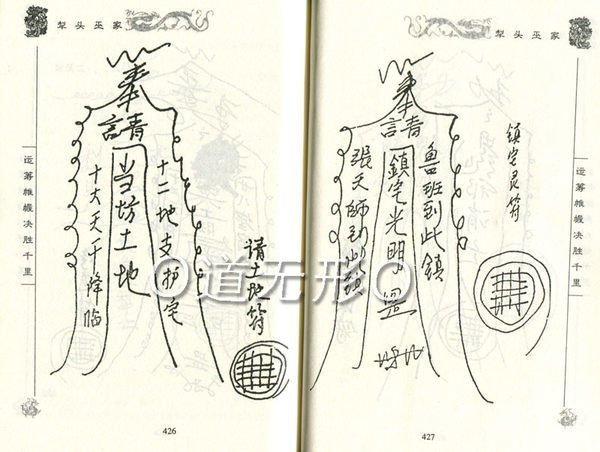 犁头巫家
奉
請
当坊土地
十二地支护宅
十大天干降临
请土地符
运筹帷幄决胜千里
426
犁头巫家
奉
請
鎮宅光明
魯班到此鎮
張天師到此鎮
鎮宅灵符
运筹帷幄决胜千里
427
O道无形O